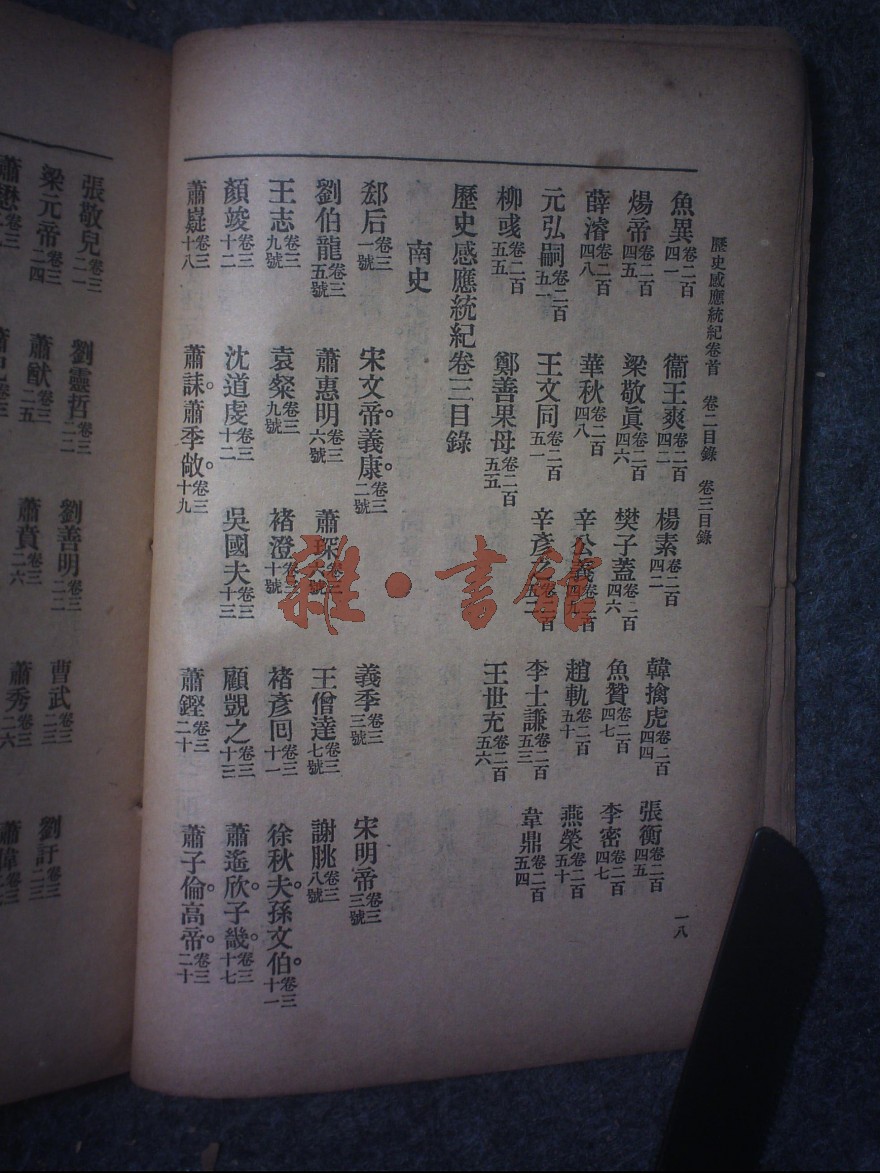 歷史感應統紀卷首　卷二目錄　卷三目錄　一八
魚異卷二百四一　衞王爽卷二百四二　楊素卷二百四二　韓擒虎卷二百四四　張衡卷二百四五
煬帝卷二百四五　梁敬眞卷二百四六　樊子蓋卷二百四六　魚贊卷二百四七　李密卷二百四七
薛濬卷二百四八　華秋卷二百四八　辛公義卷二百四九　趙軌卷二百五十　燕榮卷二百五十
元弘嗣卷二百五一　王文同卷二百五一　辛彥之卷二百五二　李士謙卷二百五三　韋鼎卷二百五四
柳彧卷二百五五　鄭善果母卷二百五五　王世充卷二百五六
歷史感應統紀卷三目錄
南史
郄后卷三一號　宋文帝。義康。卷三二號　義季卷三三號　宋明帝卷三三號
劉伯龍卷三五號　蕭惠明卷三六號　蕭琛卷三六號　王僧達卷三七號　謝朓卷三八號
王志卷三九號　袁粲卷三九號　褚澄卷三十號　褚彥回卷三十一　徐秋夫。孫文伯。卷三十一
顏竣卷三十二　沈道虔卷三十二　吳國夫卷三十三　顧覬之卷三十三　蕭遙欣。子幾。卷三十七
蕭嶷卷三十八　蕭誄。蕭季敞。卷三十九　蕭鏗卷三二十　蕭子倫。高帝。卷三二十
張敬兒卷三二一　劉靈哲卷三二二　劉善明卷三二二　曹武卷三二三　劉訏卷三二三
梁元帝卷三二四　蕭猷卷三二五　蕭賁卷三二六　蕭秀卷三二六　蕭偉卷三
蕭懋卷三
雜·書館